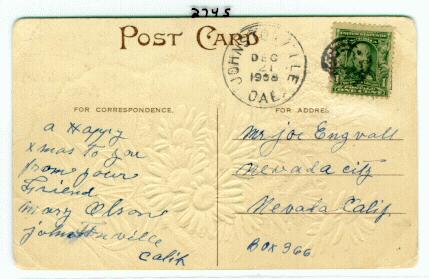 2745
POST CARD
JOHNSTONVILLE
DEC
21
1908
CAL.
FOR CORRESPONDENCE.
FOR ADDRESS
a Happy
Xmas To you
from your
Friend
Mary Olson
Johnstonville
Calif
Mr Joe Engvall
Nevada city
Nevada Calif.
Box 966.